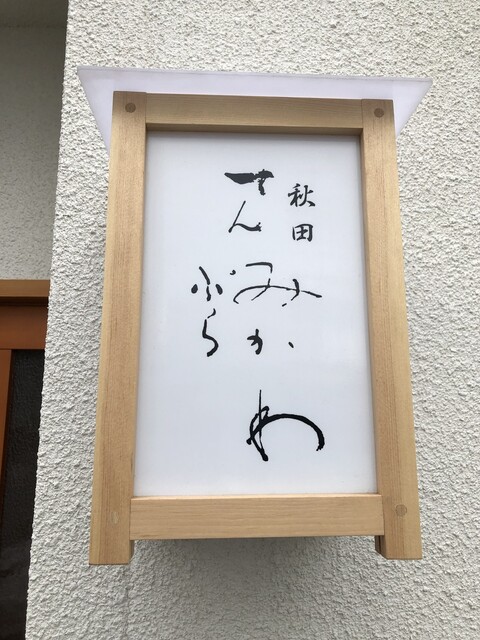 秋田
みかわ
てん
ぷら